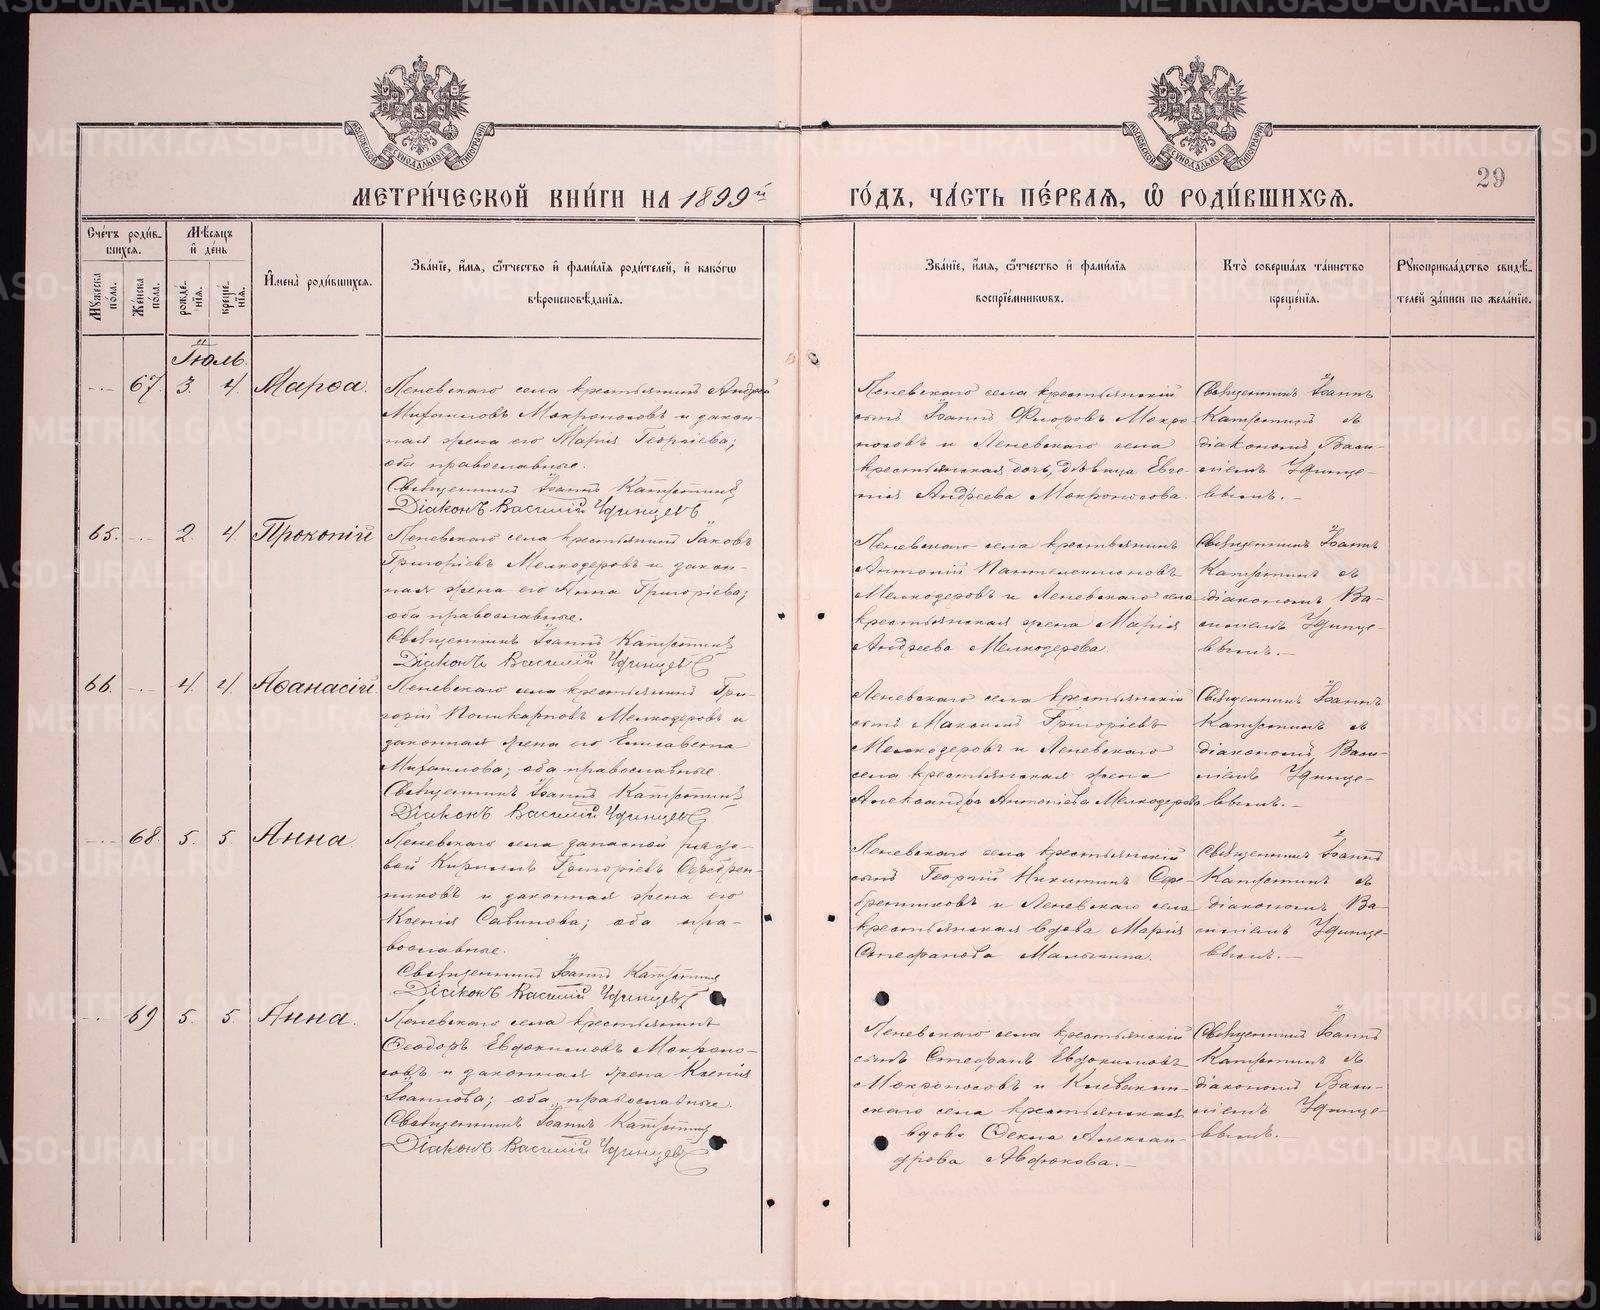 МЕТРИ́ЧЕСКОЙ КНИ́ГИ НА 1899й
ГО́ДЪ, ЧА́СТЬ ПЕ́РВАЯ, Ѡ РОДИ́ВШИХСЯ.
29
Сче́тъ роди́в-
шихся.
Мꙋ́жеска по́ла.
Же́нска по́ла.
Мѣ́сяцъ и҆ де́нь
рожде́-нїѧ.
креще́-нїѧ.
И҆мена̀ роди́вшихся.
Зва́нїе, и҆́мѧ, ѻ҆́тчество и҆ фами́лїѧ роди́телей, и҆ како́гѡ
вѣроисповѣ́данїѧ.
Зва́нїе, и҆́мѧ, ѻ҆́тчество и҆ фами́лїѧ
воспрїе́мникѡвъ.
Кто̀ соверша́лъ та́инство
креще́нїѧ.
Рꙋкоприкла́дство свидѣ́-
телей за́писи по жела́нїю.
Іюль.
67. 3. 4 Марѳа.
Леневскаго села крестьянинъ Андрей
Михаиловъ Мокроносовъ и закон-
ная жена его Марія Георгіева;
оба православные.
Священникъ Іоаннъ
Діаконъ Василій Удинцевъ
Леневскаго села крестьянскій
сынъ Іоаннъ Флоровъ Мокро-
носовъ и Леневскаго села
крестьянская дочь, дѣвица Евге-
нія Андреева Мокроносова.
Священникъ Іоаннъ
съ
діакономъ Васи-
ліемъ Удинце-
вымъ.
65. 2 4 Прокопій
Леневскаго села крестьянинъ Іаковъ
Григоріевъ Мелкозеровъ и закон-
ная жена его Анна Григоріева;
оба православные.
Священникъ Іоаннъ
Діаконъ Василій Удинцевъ
Леневскаго села крестьянинъ
Антоній Пантелеимоновъ
Мелкозеровъ и Леневскаго села
крестьянская жена Марія
Андреева Мелкозерова.
Священникъ Іоаннъ
съ
діакономъ Ва-
силіемъ Удинце-
вымъ.
66. 4. 4. Аѳанасій
Леневскаго села крестьянинъ Гри-
горій Поликарповъ Мелкозеровъ и
законная жена его Елисавета
Михаилова; оба православные.
Священникъ Іоаннъ
Діаконъ Василій Удинцевъ
Леневскаго села крестьянскій
сынъ Максимъ Григоріевъ
Мелкозеровъ и Леневскаго
села крестьянская жена
Александра Антоніева Мелкозерова
Священникъ Іоаннъ
съ
діакономъ Васи-
ліемъ Удинце-
вымъ.
68. 5. 5 Анна.
Леневскаго села запасной рядо-
вой Кириллъ Григоріевъ Серебрен-
никовъ и законная жена его
Ксенія Савинова; оба пра-
вославные.
Священникъ Іоаннъ
Діаконъ Василій Удинцевъ
Леневскаго села крестьянскій
сынъ Георгій Никитинъ Сере-
бренниковъ и Леневскаго села
крестьянская вдова Марія
Стефанова Малыгина.
Священникъ Іоаннъ
съ
діакономъ Ва-
силіемъ Удинце-
вымъ.
69 5. 5. Анна.
Леневскаго села крестьянинъ
Ѳеодоръ Евдокимовъ Мокроно-
совъ и законная жена Ксенія
Іоаннова; оба православные.
Священникъ Іоаннъ
Діаконъ Василій Удинцевъ
Леневскаго села крестьянскій
сынъ Стефанъ Евдокимовъ
Мокроносовъ и Клевакин-
скаго села крестьянская
вдова Ѳекла Алексан-
дрова Авдюкова.
Священникъ Іоаннъ
съ
діакономъ Васи-
ліемъ Удинце-
вымъ.
METRIKI.GASO-URAL.RU